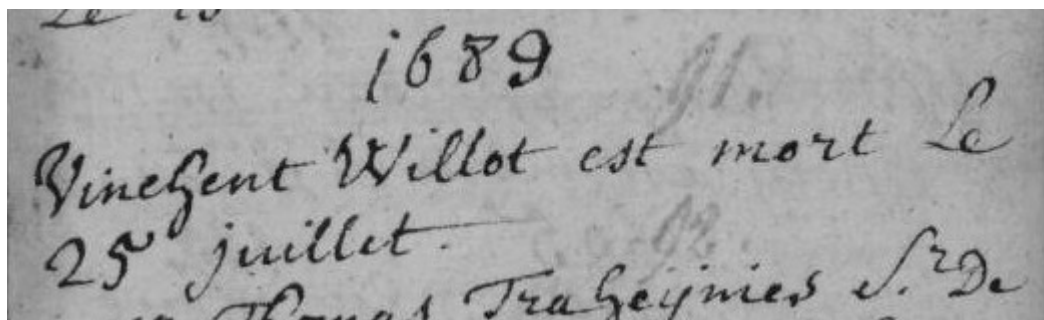 Le
1689
Vinchent Willot est mort Le
25 juillet.
Thomas Traheijnies Sr. De